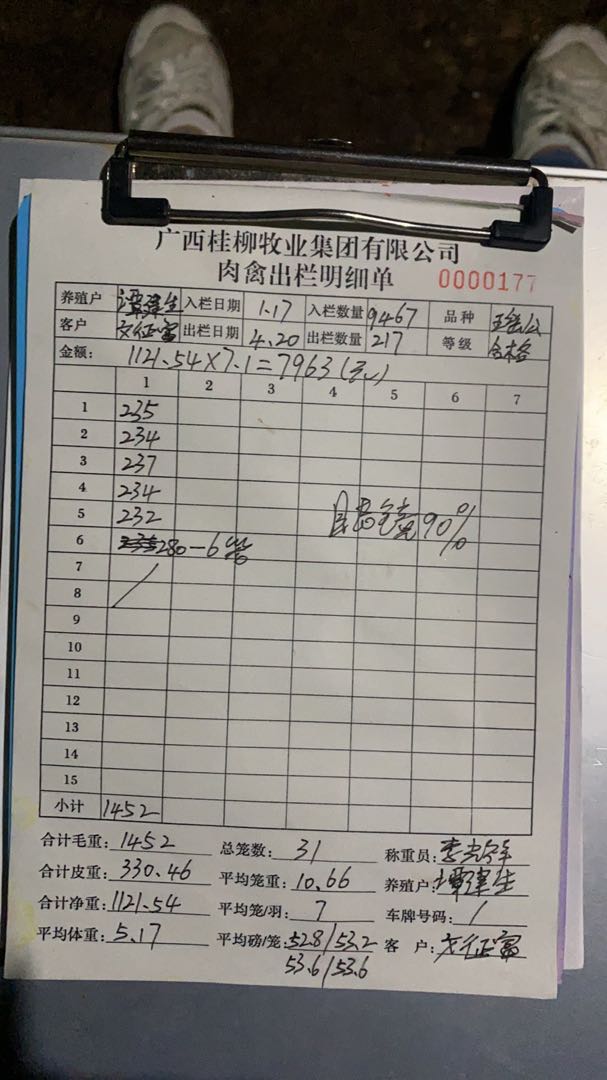 广西桂柳牧业集团有限公司
肉禽出栏明细单 0000177
养殖户 谭建生 入栏日期 1.17 入栏数量 9467 品种
客户 文征富 出栏日期 4.20 出栏数量 217 等级 合格
金额: 1121.54×7.1=7963(元)
1 2 3 4 5 6 7
1 235
2 234
3 237
4 234
5 232
6 280-6笼
7
8
9
10
11
12
13
14
15
90%
小计 1452
合计毛重: 1452 总笼数: 31 称重员:
合计皮重: 330.46 平均笼重: 10.66 养殖户: 谭建生
合计净重: 1121.54 平均笼/羽: 7 车牌号码: /
平均体重: 5.17 平均磅/笼: 52.8/53.2 客 户: 文征富
53.6/53.6